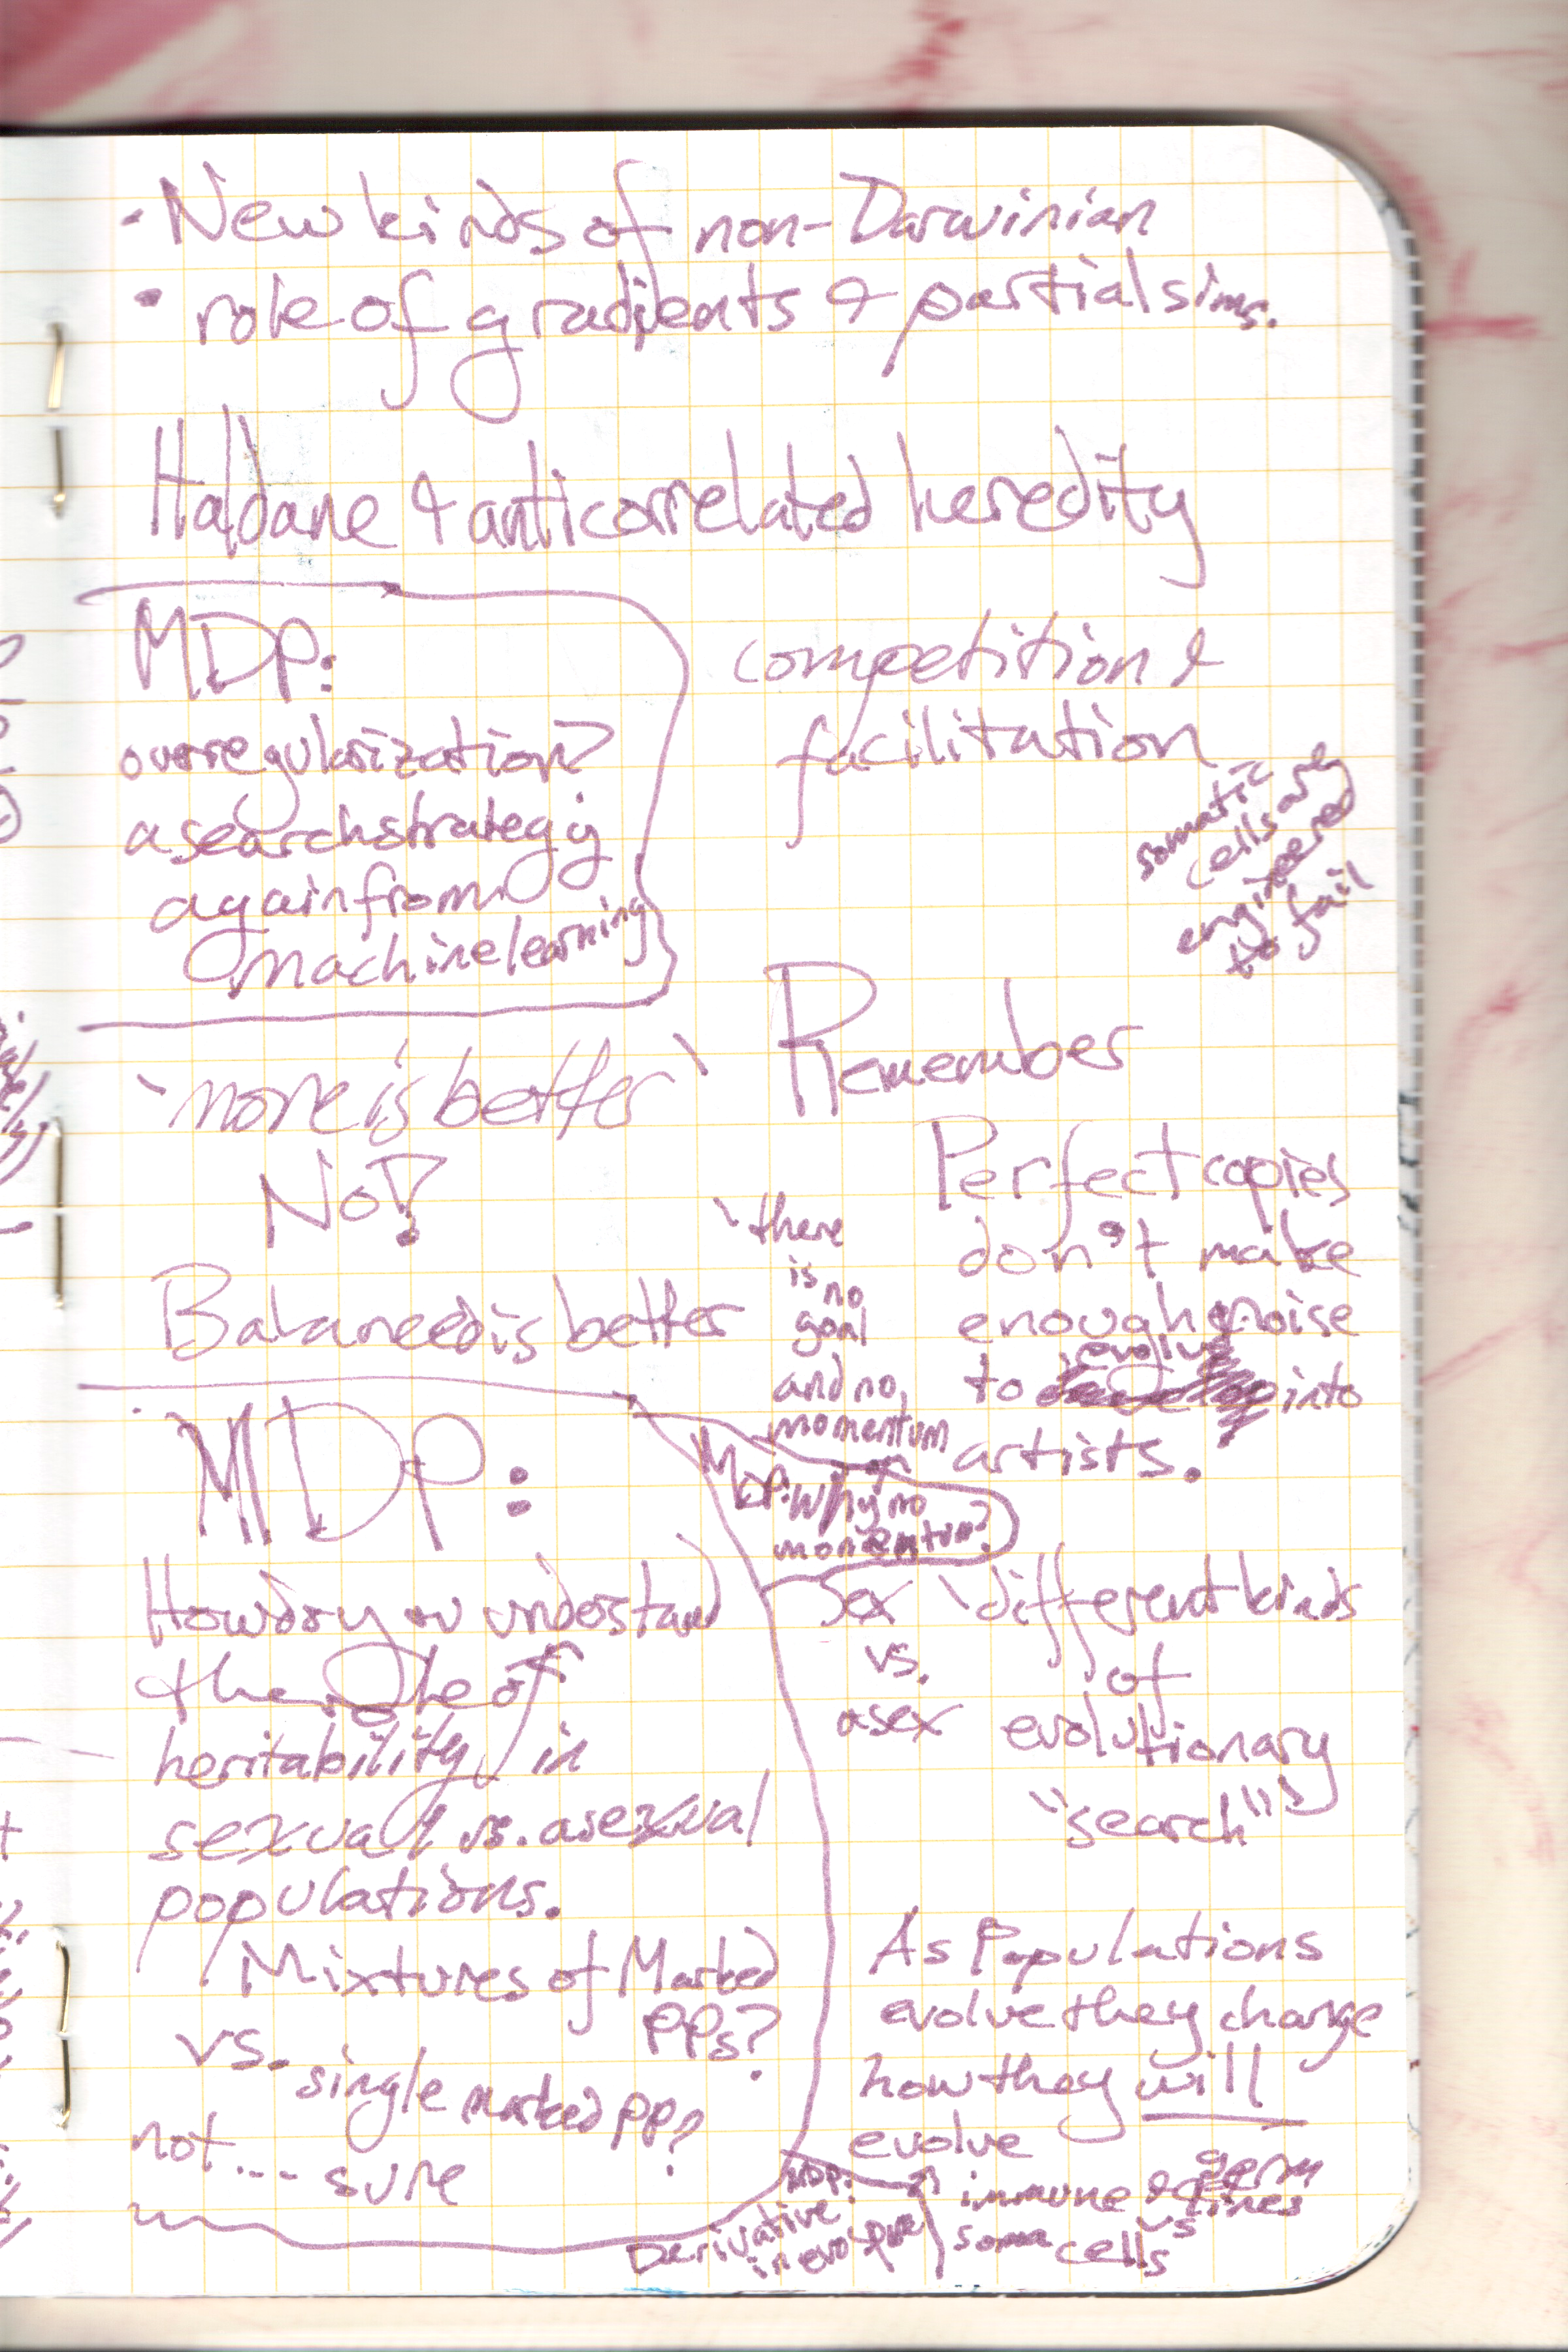 · New kinds of non-Darwinian
· role of gradients & partial sims.
Haldane & anticorrelated heredity
MDP:
overregularization?
a search strategy
again from
machine learning
competition &
facilitation
somatic
cells are
engineered
to fail
'more is better'
No!
Balanced is better
Remember
Perfect copies
don't make
enough noise
evolve
to into
artists.
'there
is no
goal
and no
momentum
MDP: Why no
momentum?
MDP:
How do you understand
the role of
heritability in
sexual vs. asexual
populations.
Mixtures of Marked
PPs?
vs. single marked pp?
not... sure
Sex
vs.
asex
'different kinds
of
evolutionary
"search"'
As Populations
evolve they change
how they will
evolve
MDP:
Derivative
in evo
immune & germ
lines
vs
soma cells